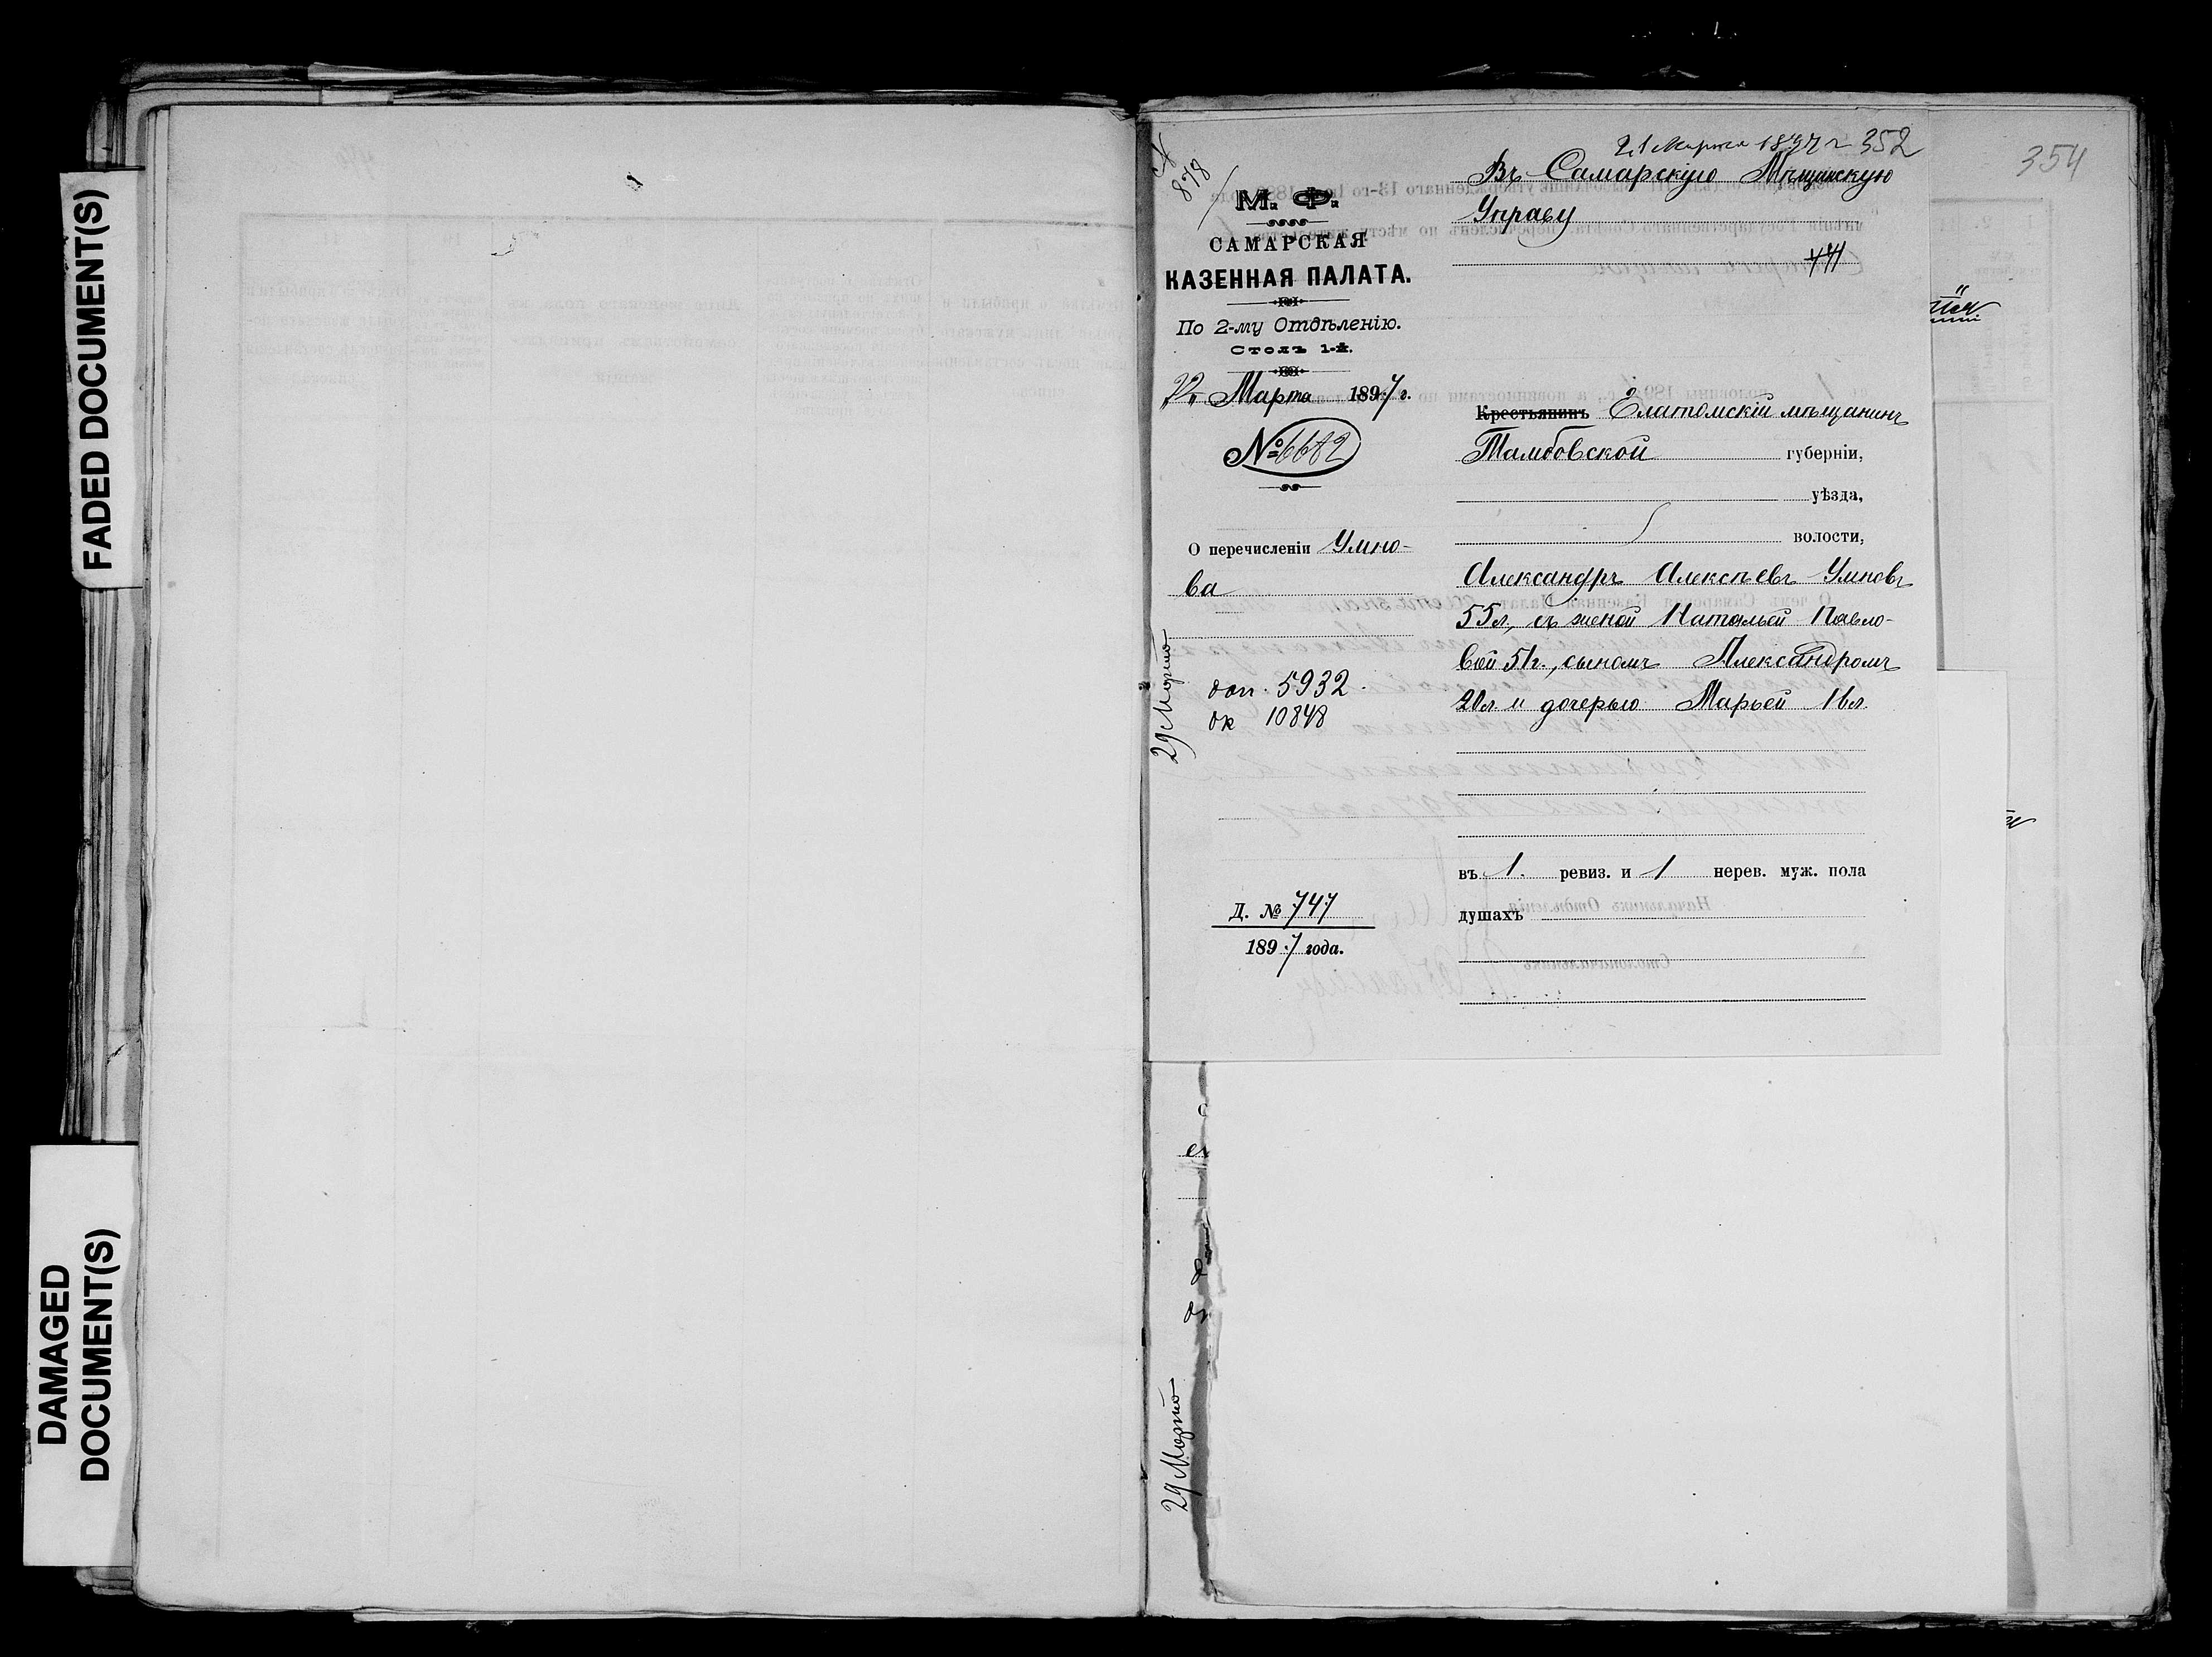 FADED DOCUMENT(S)
DAMAGED
DOCUMENT(S)
878
М. Ф.
САМАРСКАЯ
КАЗЕННАЯ ПАЛАТА.
По 2-му Отдѣленію.
Столъ 1-й.
Марта 1897 г.
№ 6682
О перечисленіи Умно-
ва
доп. 5932.
ок 10848
29 Марта
Д. № 747
1897 года.
21 Марта 1897 г 352
Въ Самарскую Мѣщанскую
Управу
354
Крестьянинъ Елатомскій мѣщанинъ
Тамбовской губерніи,
уѣзда,
волости,
Александръ Алексѣевъ Умновъ
55 л., съ женой Натальей Павло-
вой 51 г., сыномъ Александромъ
20 л. и дочерью Марьей 16 л.
въ 1. ревиз. и 1 нерев. муж. пола
душахъ
29 Марта